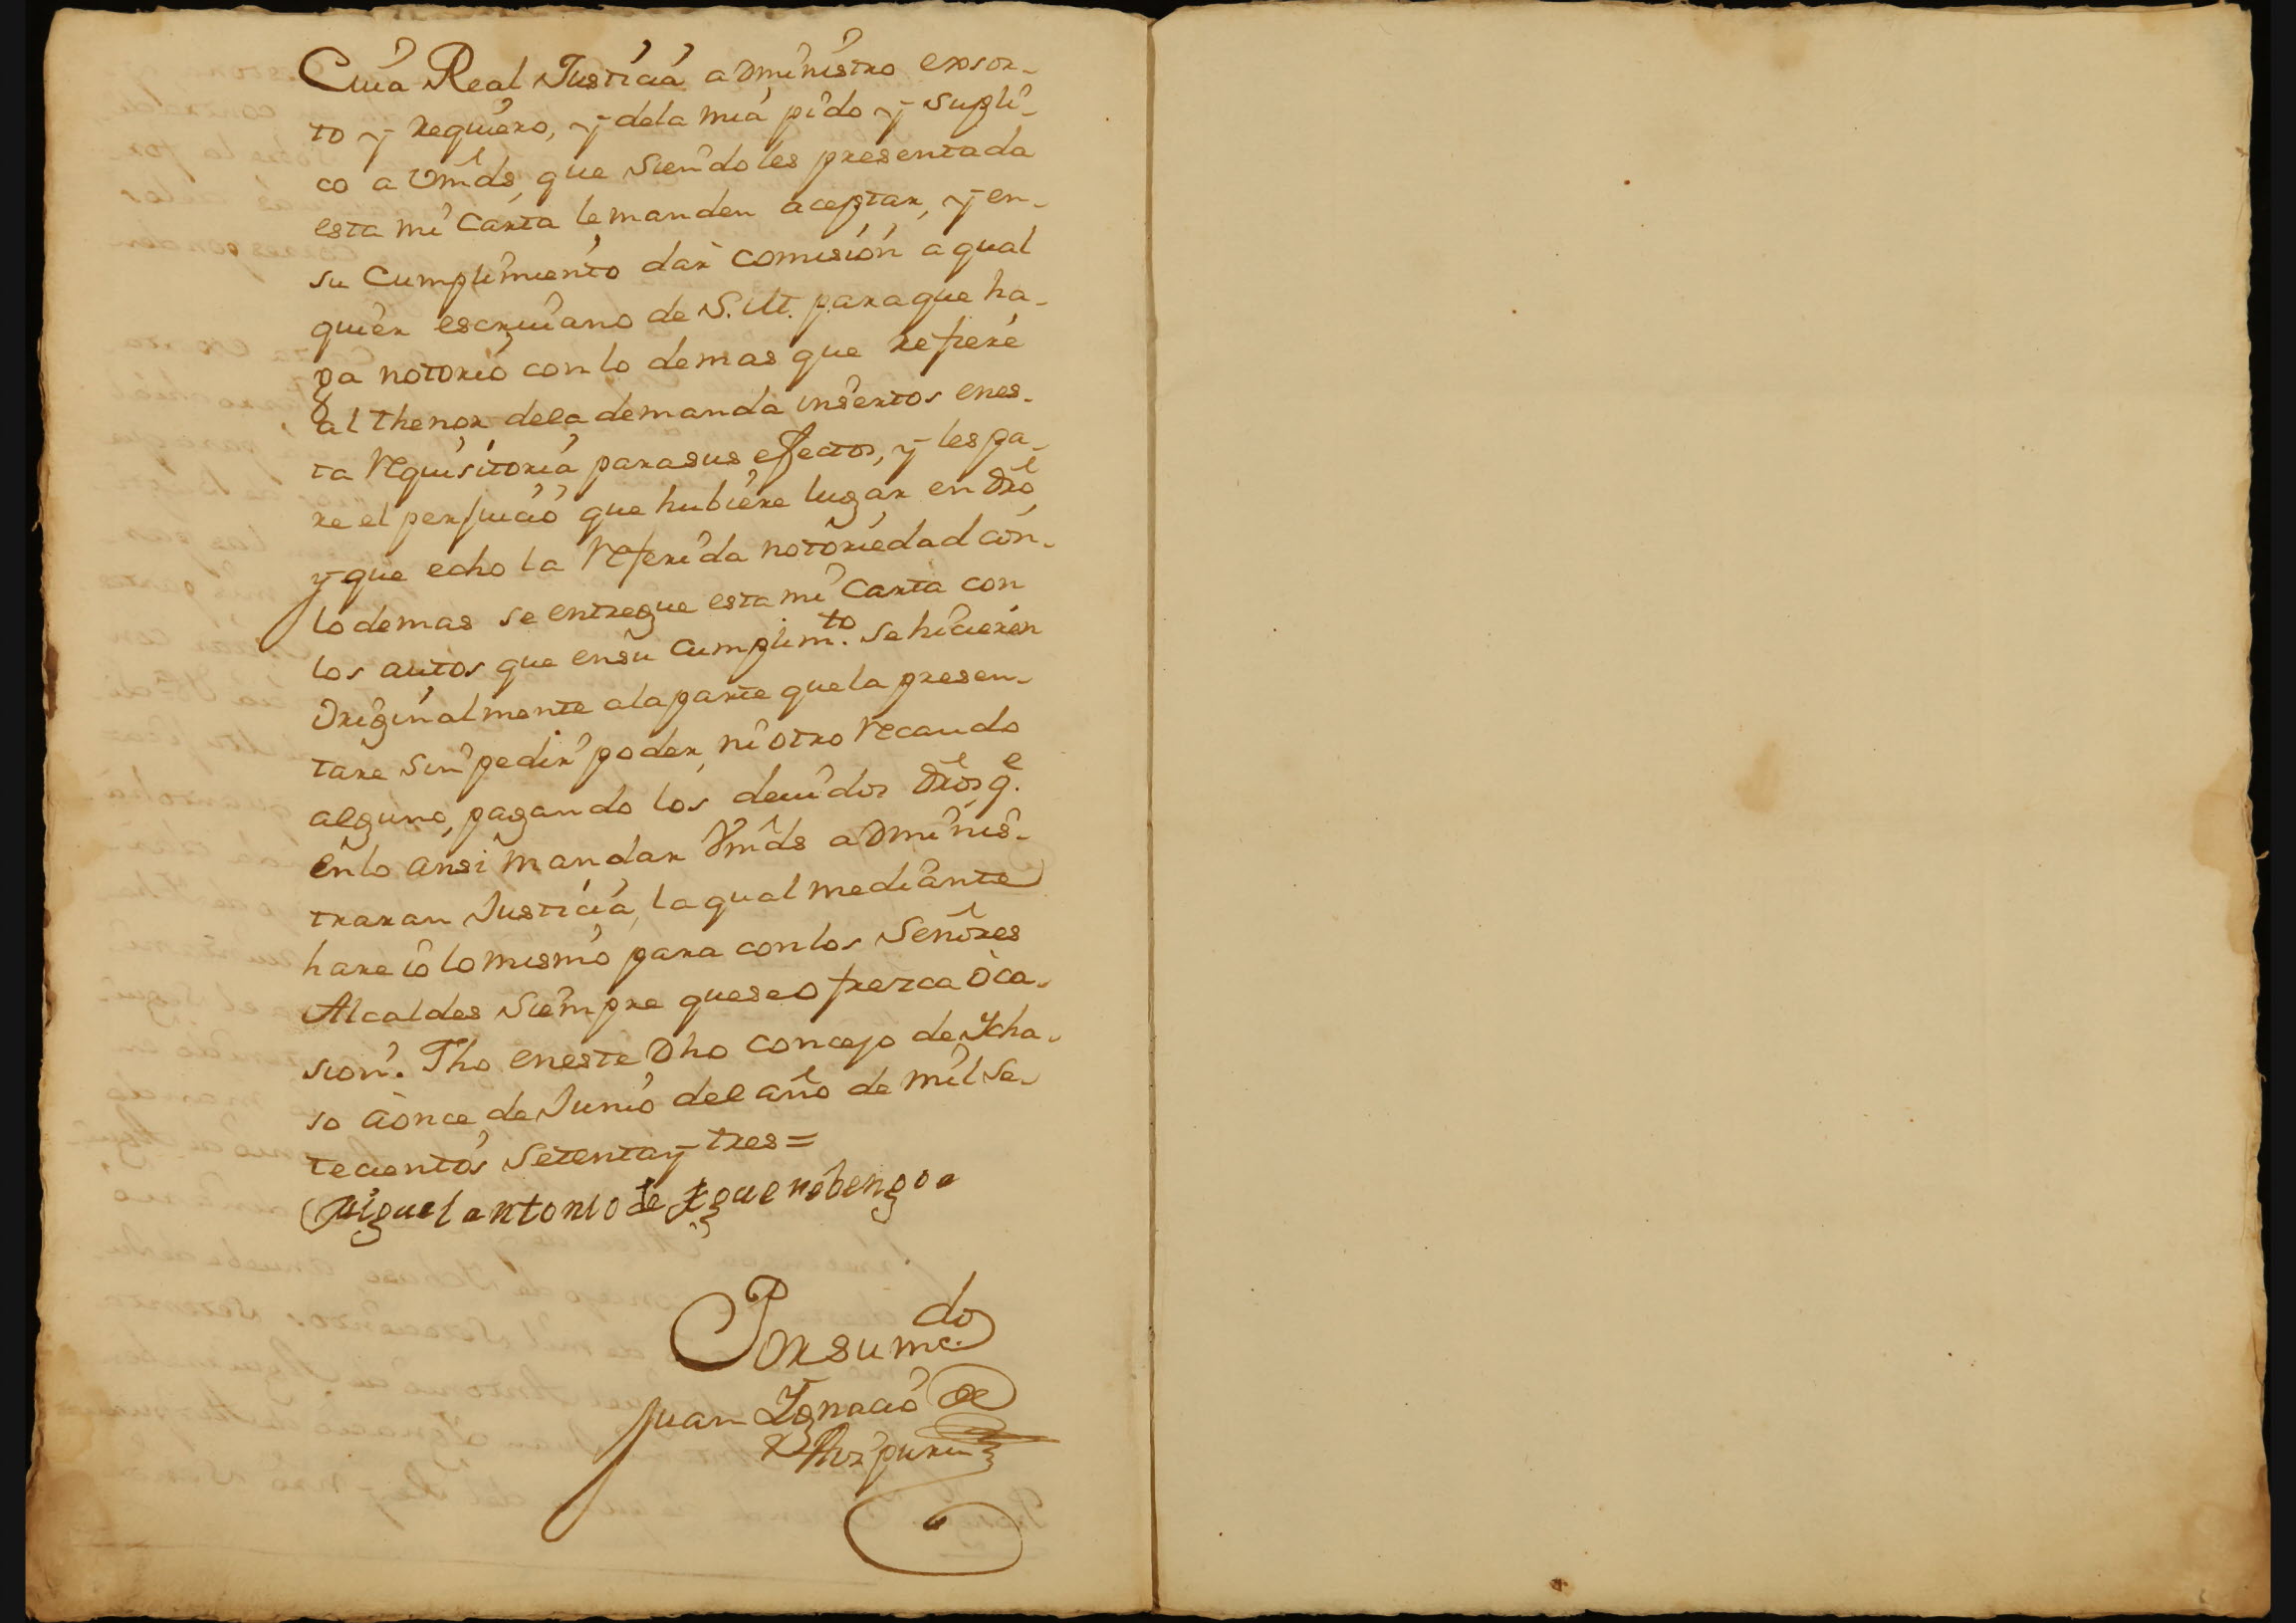 Cuia Real Justicia administro exsor-
to y requiero, y dela mia pido y supli-
co a Vmds, que siendoles presentada
esta mi Carta lemanden aceptar, y en-
su Cumplimiento dar comision a qual
quier escriuano de S.M. paraque ha-
ga notorio con lo demas que refiere
al thenor dela demanda insertos enes-
ta requisitoria parasus efectos, y les pa-
re el perjuicio que hubiere lugar en dro
y que echo la referida notoriedad con-
lodemas se entregue esta mi Carta con
los autos que ensu cumplimto. se hicieren
Originalmente ala parte quela presen-
tare sin pedir poder, ni otro recaudo
alguno, pagando los deuidos dros qe.
enlo ansi mandar Vmds adminis-
traran Justicia, la qual mediante
hare io lo mismo para conlos Señores
Alcaldes siempre quese ofrezca oca-
sion. Fho eneste Dho concejo de Ycha-
so a once de Junio del año de mil se-
tecientos setenta y tres =
Miguel antonio de Aguerebengoa
Por su mdo.
Juan Ygnacio de
Aizpuru